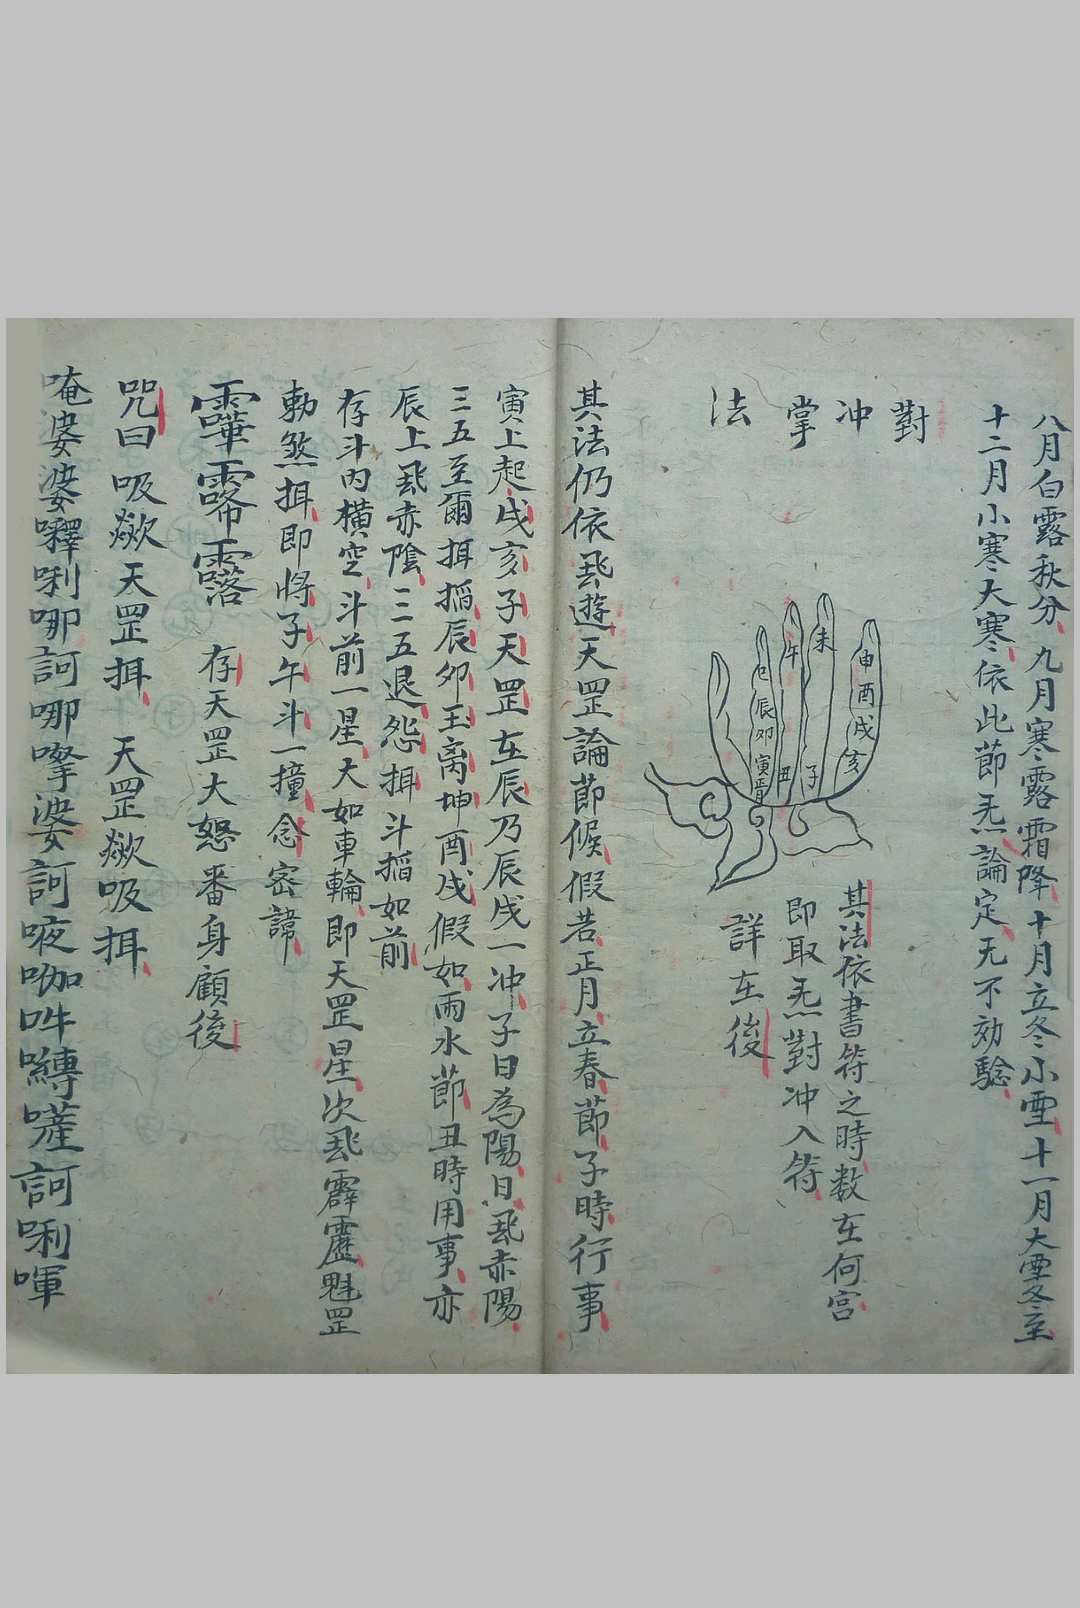 八月白露秋分九月寒露霜降十月立冬小雪十一月大雪冬至
十二月小寒大寒依此節炁論定无不効驗
對冲掌法
申酉戌亥
未
午
巳辰卯寅
丑子
其法依書符之時数在何宮
即取炁對冲入符
詳在後
其法仍依飛遊天罡論節候假若正月立春節子時行事
寅上起戌亥子天罡在辰乃辰戌一冲子日為陽日飛赤陽
三五至爾揖搯辰卯玉离坤酉戌假如雨水節丑時用事亦
辰上飛赤陰三五退怨揖斗搯如前
存斗内橫空斗前一星大如車輪即天罡星次飛霹靂魁罡
勅煞揖即將子午斗一撞念密諱
存天罡大怒番身顧後
咒曰吸歘天罡揖天罡歘吸揖
唵婆婆嚩唎哪訶哪婆訶吽訶唎